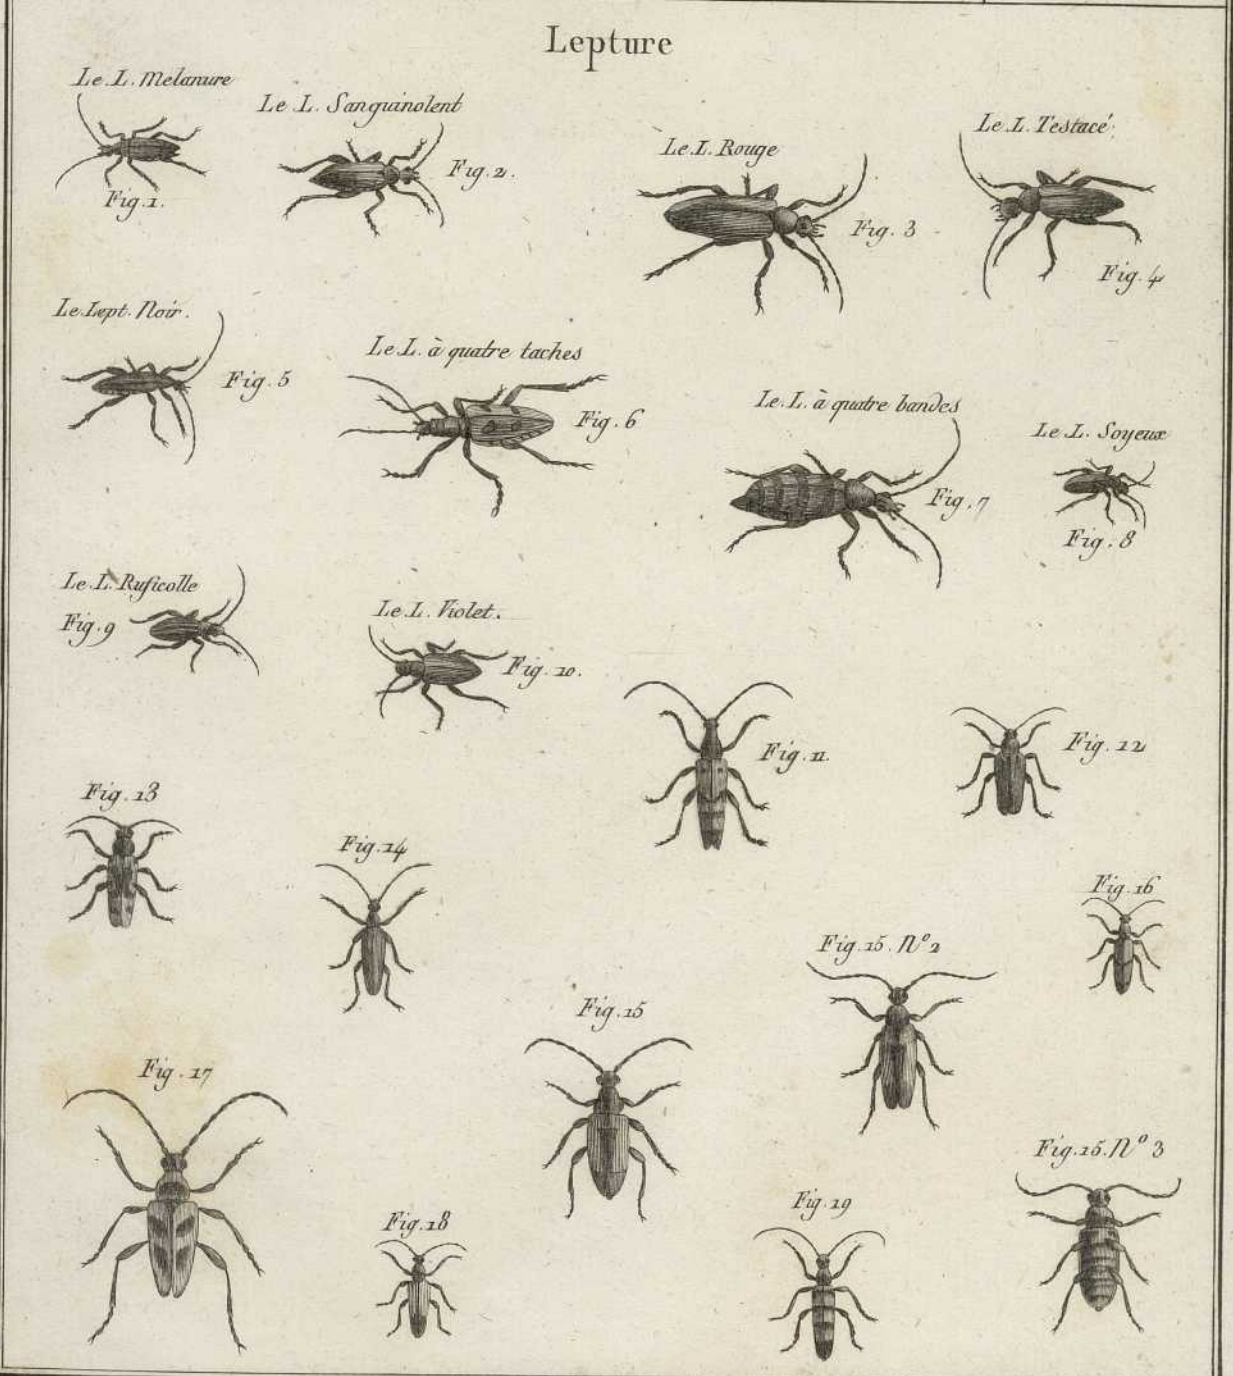 Lepture
Le L. Melanure
Fig. 1.
Le L. Sanguinolent
Fig. 2.
Le L. Rouge
Fig. 3
Le L. Testacé
Fig. 4
Le Lept. Noir.
Fig. 5
Le L. à quatre taches
Fig. 6
Le L. à quatre bandes
Fig. 7
Le L. Soyeux
Fig. 8
Le L. Ruficolle
Fig. 9
Le L. Violet.
Fig. 10.
Fig. 11.
Fig. 12
Fig. 13
Fig. 14
Fig. 16
Fig. 15. N° 2
Fig. 15
Fig. 17
Fig. 15. N° 3
Fig. 18
Fig. 19